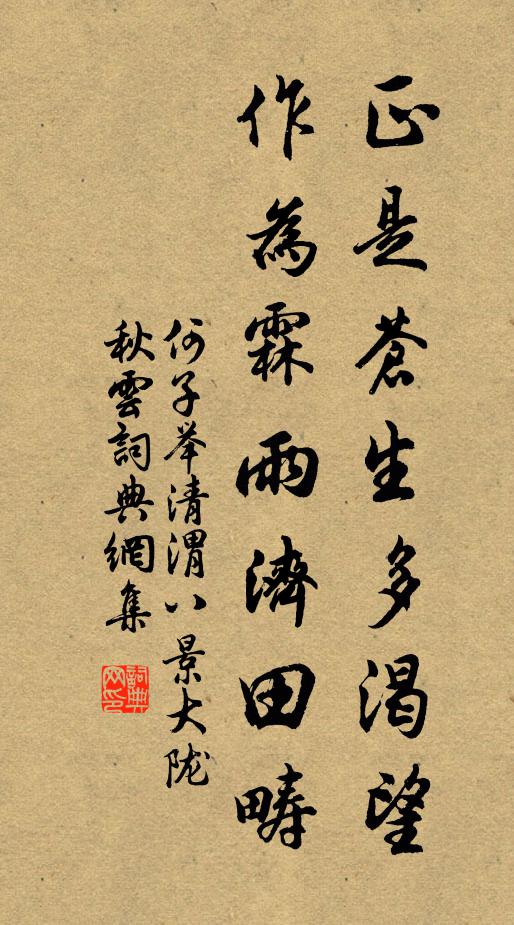 正是蒼生多渴望
作為霖雨濟田疇
何子举清渭八景大陇
秋雲詞典網集
詞典網印